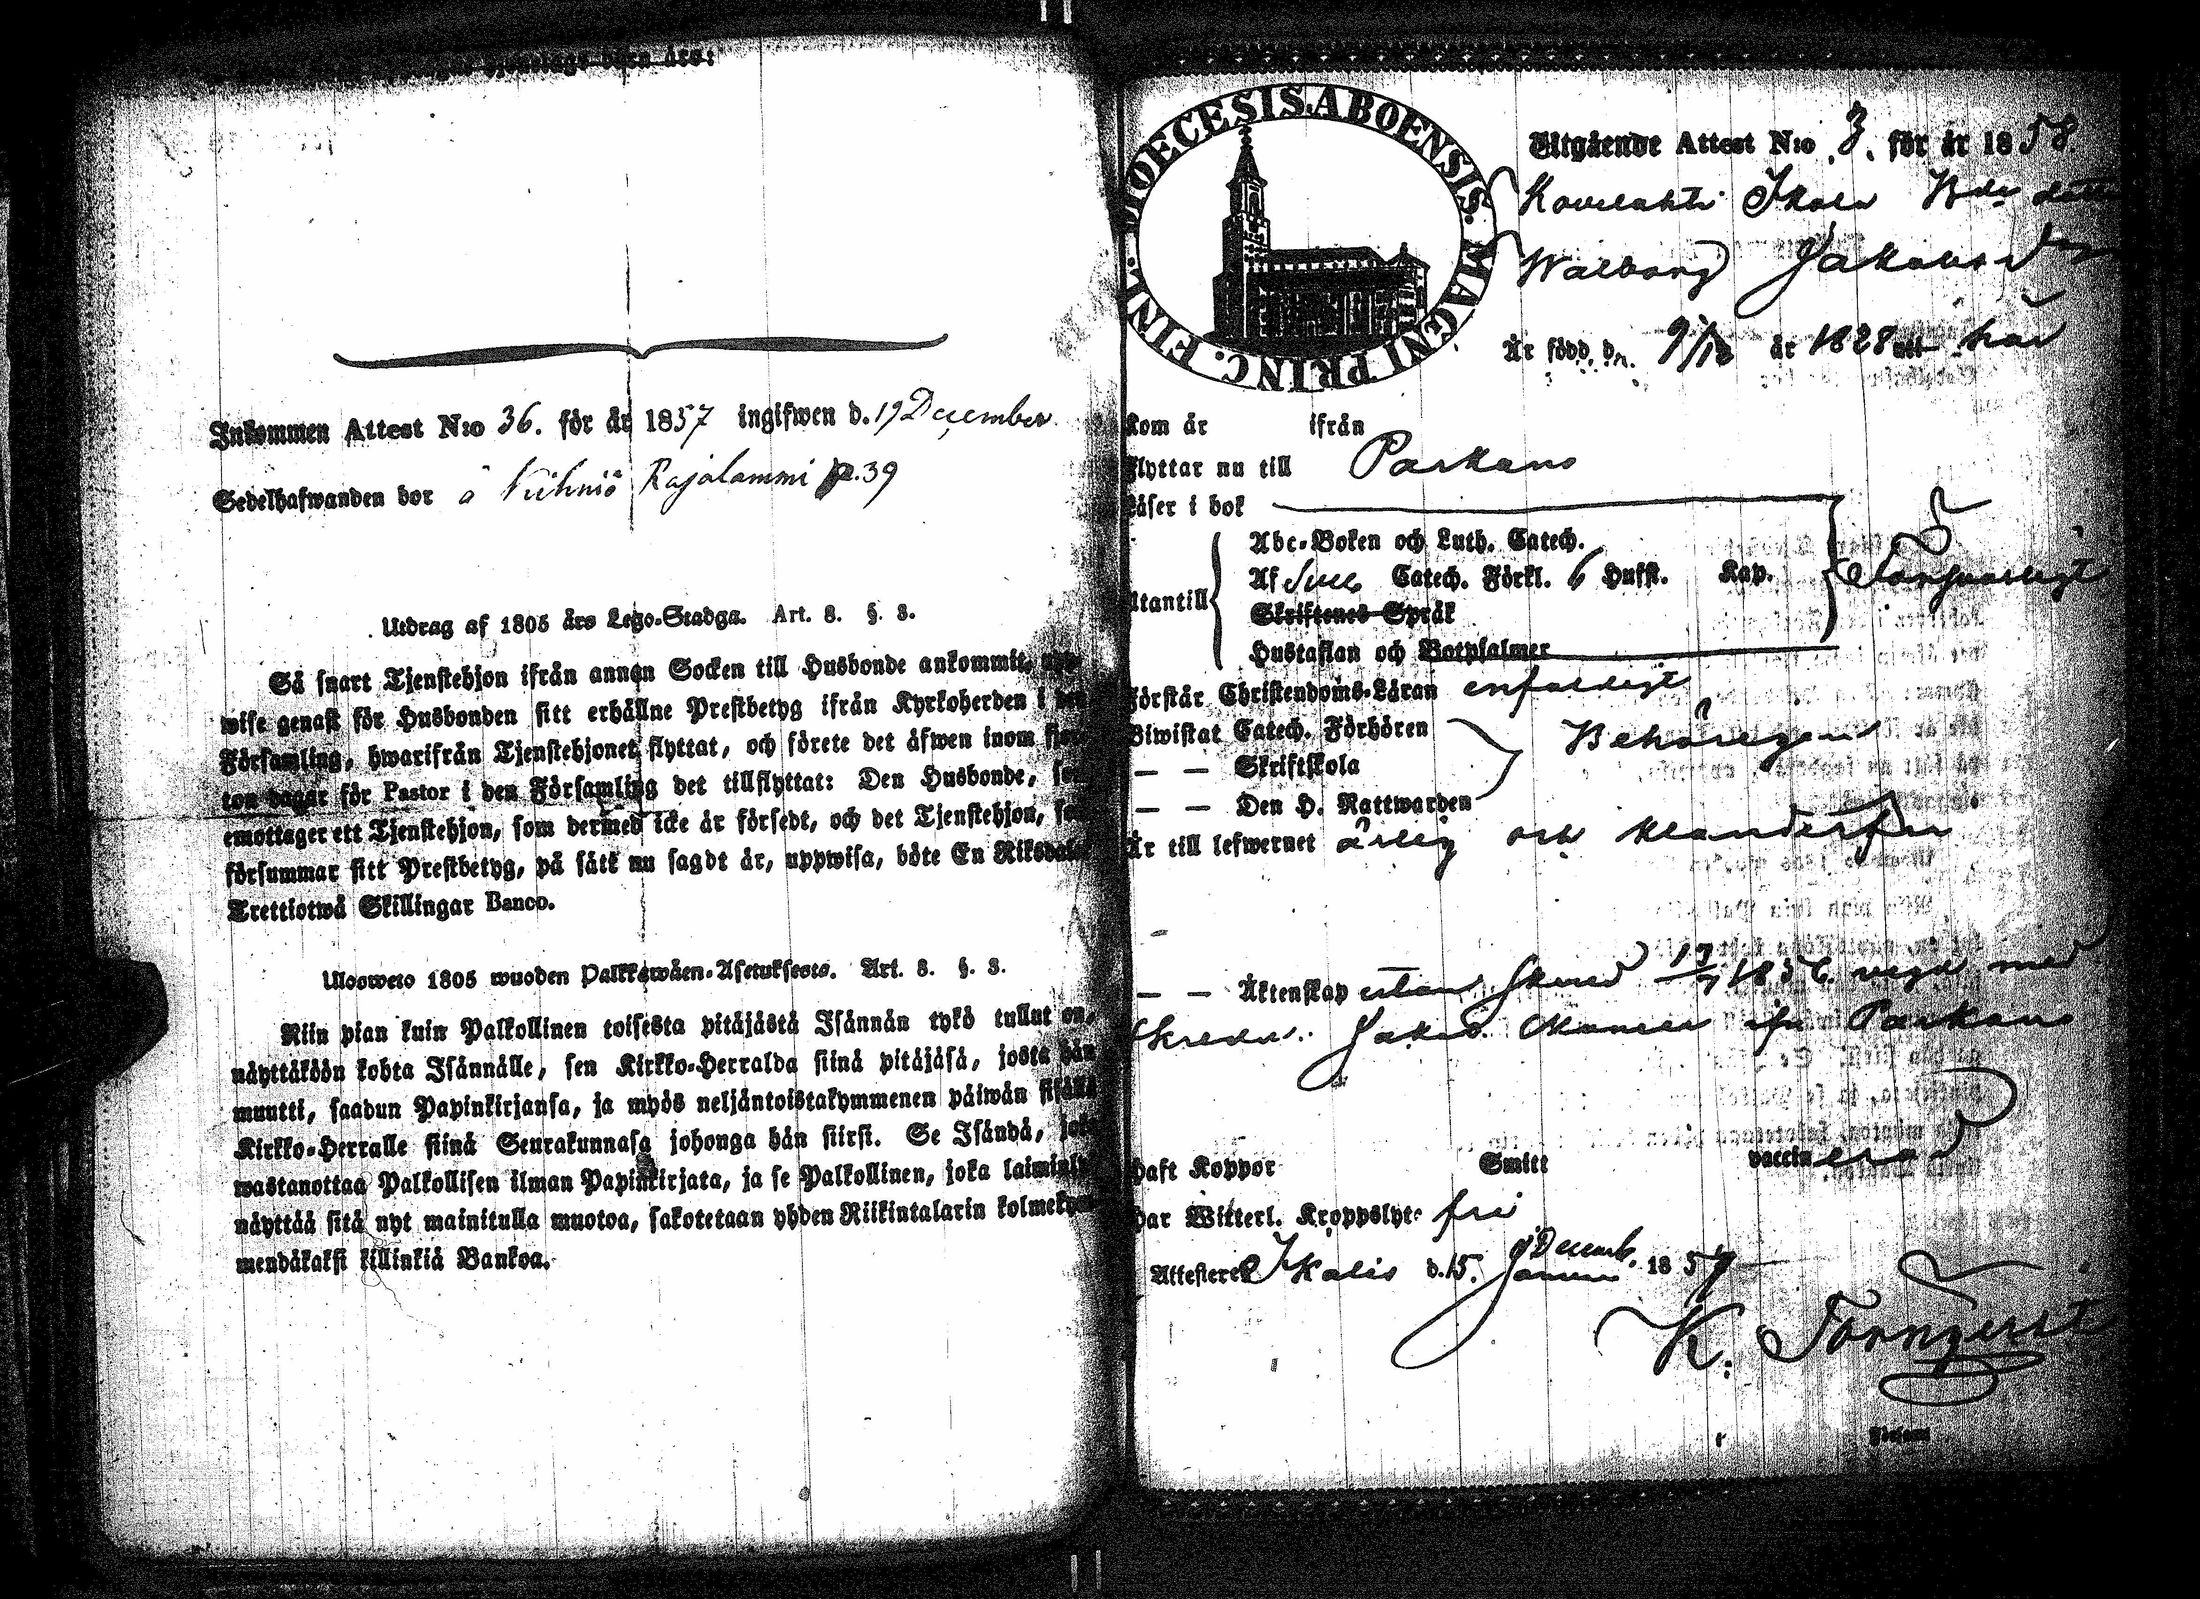 barn äro:
Inkommen Attest N:o 36. för år 1857 ingifwen d. 19 December
Sedelhafwanden bor å Kihniö Rajalammi p. 39
Utdrag af 1805 års Lego-Stadga. Art. 8. §. 3.
Så snart Tjenstehjon ifrån annan Socken till Husbonde ankommit,
wise genast för Husbonden sitt erhållne Prestbetyg ifrån Kyrkoherden i
Församling, hwarifrån Tjenstehjonet flyttat, och förete det äfwen inom
ton dagar för Pastor i den Församling det tillflyttat: Den Husbonde,
emottager ett Tjenstehjon, som dermed icke är försedt, och det Tjenstehjon,
försummar sitt Prestbetyg, på sätt nu sagdt är, uppwisa, böte En
Trettiotwå Skillingar Banco.
Ulosweto 1805 wuoden Palkkawäen-Asetuksesta. Art. 8. §. 3.
Niin pian kuin Palkollinen toisesta pitäjästä Isännän tykö tullut on,
näyttäköön kohta Isännälle, sen Kirkko-Herralda siinä pitäjäsä, josta hän
muutti, saadun Papinkirjansa, ja myös neljäntoistakymmenen päiwän sisällä
Kirkko-Herralle siinä Seurakunnasa johonga hän siirsi. Se Isändä,
wastanottaa Palkollisen ilman Papinkirjata, ja se Palkollinen, joka
näyttää sitä nyt mainitulla muotoa, sakotetaan yhden Riikintalarin
mendäkaksi killinkiä Bankoa.
DIOECESIS ABOENSIS. MAGNI PRINC. FINL.
Utgående Attest N:o 3. för år 1858.
Kovelahti Ikola
Walborg Jakobsd
Är född d. 9/12 år 1828 har
Kom år ifrån
Flyttar nu till Parkano
Läser i bok
Abc-Boken och Luth. Catech.
Af Sveb Catech. Förkl. 6 Hufst. Kap. Försvarligt
Utantill
Skriftenes Språk
Hustaflan och Botpsalmer
Förstår Christendoms-Läran enfaldigt
Biwistat Catech. Förhören Behörigen
— — Skriftskola
— — Den H. Nattwarden
Är till lefwernet ärlig och klanderfri
— — Äktenskap 1856. med
Jakob ifr Parkano
Haft Koppor Smitt vaccinerad
Har Witterl. Kroppslyte fri
Attesterer Ikalis d. 15. Decemb. 1857
K. Törnqvist